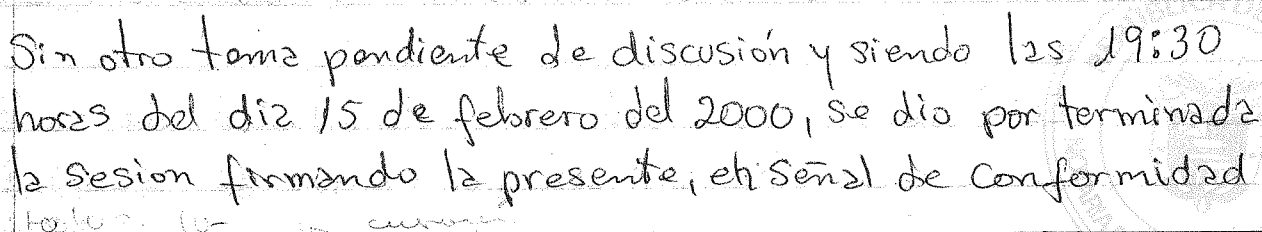 Sin otro tema pendiente de discusión y siendo las 19:30
horas del dia 15 de febrero del 2000, se dio por terminada
la sesion firmando la presente, en señal de conformidad